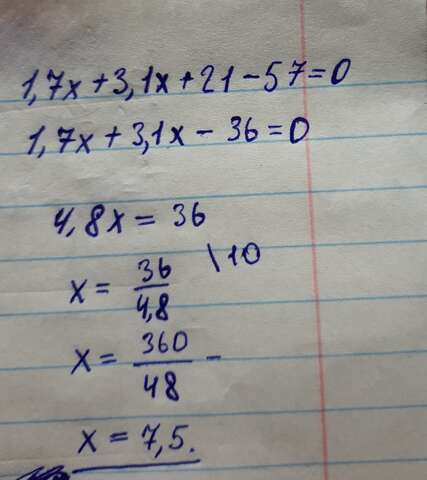 1,7x+3,1x+21-57=0
1,7x+3,1x-36=0
4,8x=36
x=36/4,8 \10
x=360/48-
x=7,5.